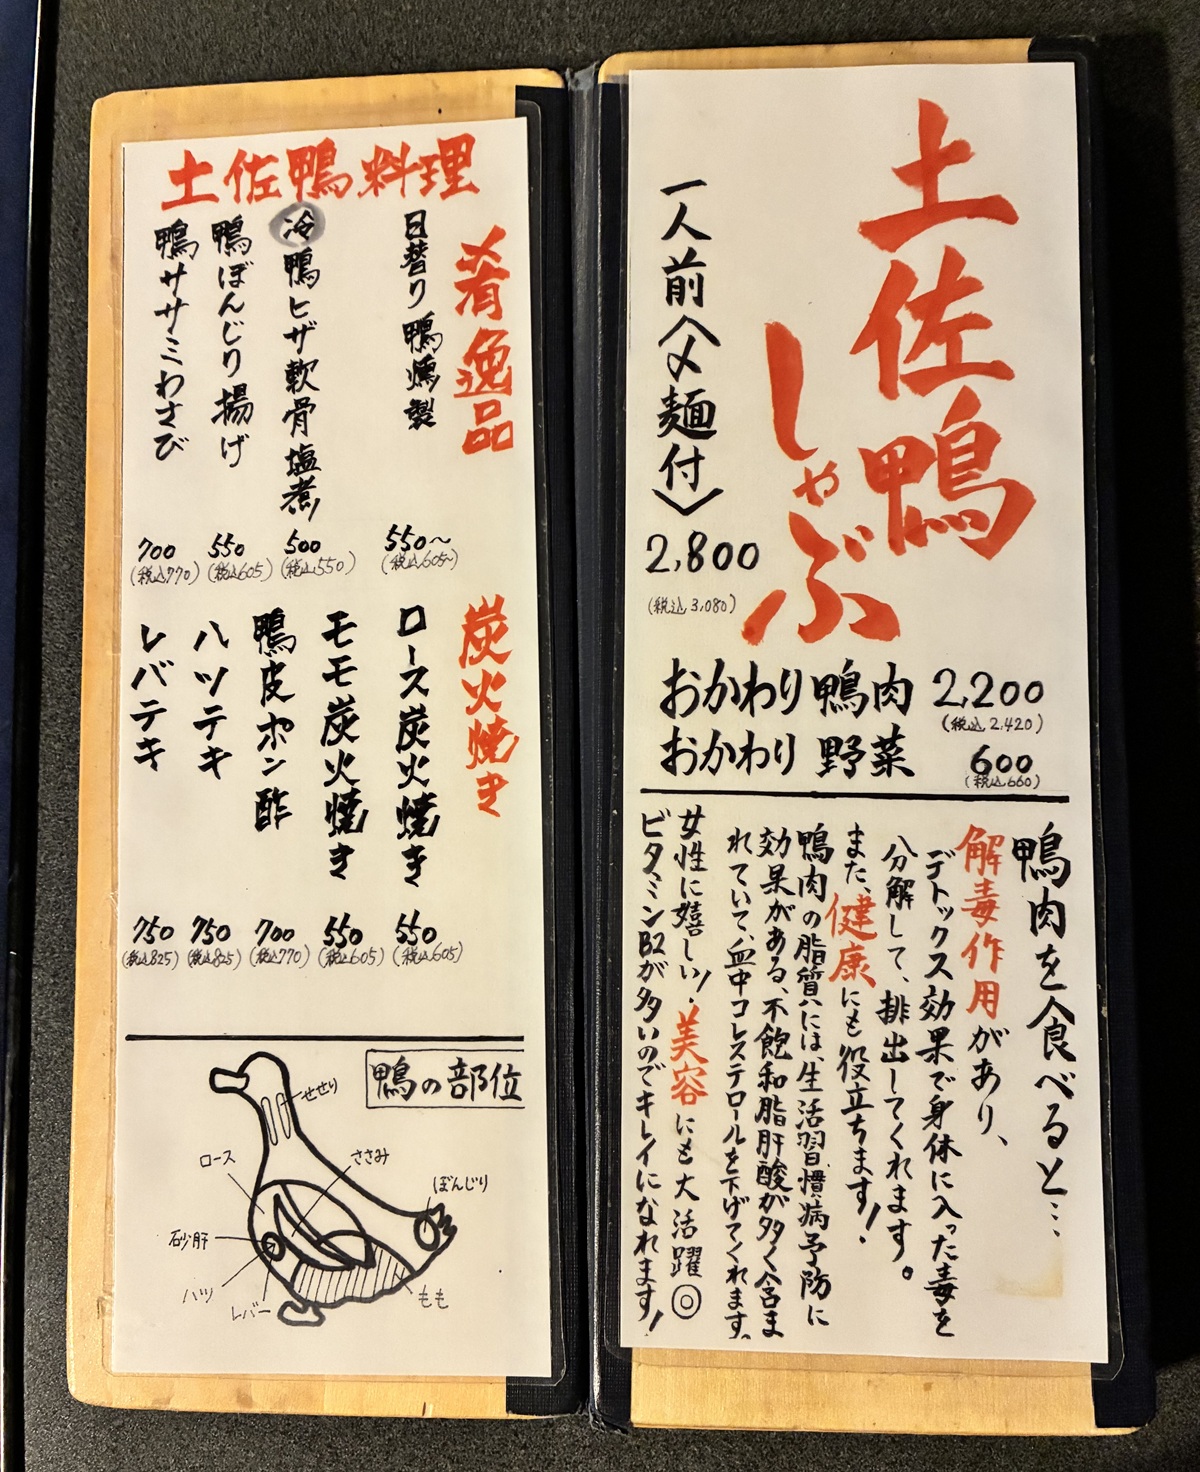 土佐鴨
しゃぶ
一人前〈〆麺付〉
2,800
(税込 3,080)
おかわり鴨肉 2,200
(税込 2,420)
おかわり野菜 600
(税込 660)
鴨肉を食べると…
解毒作用があり、
デトックス効果で身体に入った毒を
分解して、排出してくれます。
また、健康にも役立ちます!
鴨肉の脂質には、生活習慣病予防に
効果がある、不飽和脂肝酸が多く含ま
れていて、血中コレステロールを下げてくれます。
女性に嬉しい!美容にも大活躍◎
ビタミンB2が多いのでキレイになれます!
土佐鴨料理
肴逸品
日替り鴨燻製
550~
(税込605~)
冷 鴨ヒザ軟骨塩煮
500
(税込550)
鴨ぼんじり揚げ
550
(税込605)
鴨ササミわさび
700
(税込770)
炭火焼き
ロース炭火焼き
550
(税込605)
モモ炭火焼き
550
(税込605)
鴨皮ポン酢
700
(税込770)
ハツテキ
750
(税込825)
レバテキ
750
(税込825)
鴨の部位
せせり
ロース
ささみ
ぼんじり
砂肝
ハツ
レバー
もも